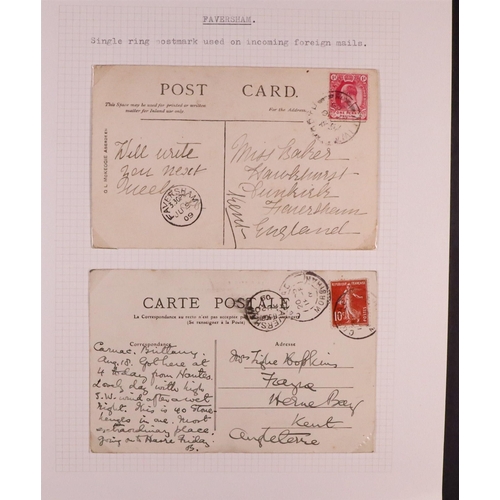 FAVERSHAM.
Single ring postmark used on incoming foreign mails.
POST CARD.
This Space may be used for printed or written
matter for Inland use only.
For the Address.
Will write
you next
week
Miss Baker
Hawkhurst
Dunkirk
Faversham
Kent
England
FAVERSHAM
JU
09
CARTE POSTALE
La Correspondance au recto n'est pas acceptée par tous les pays étrangers
(Se renseigner à la Poste)
Correspondance
Adresse
Carnac, Brittany.
Aug. 18. Got here at
4 today from Nantes
Lovely day with high
S.W. wind after a wet
night. This is 40
in one. Most
extraordinary place.
going on to Havre Friday
B.
Mrs Tighe Hopkins
Herne Bay
Kent
Angleterre
10